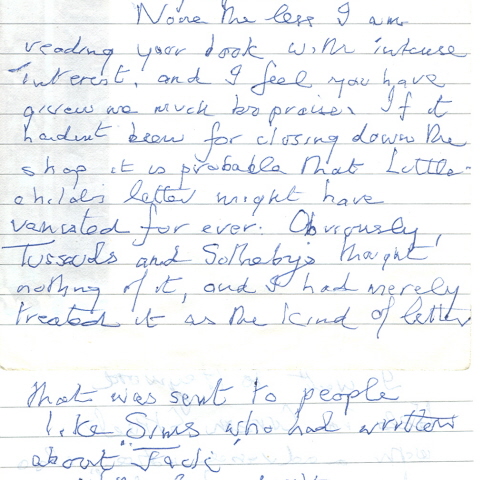 None the less I am
reading your book with intense
interest, and I feel you have
given me much to praise. If it
hadent been for closing down the
shop it is probable that Little-
child's letter might have
vanished for ever. Obviously,
Tussauds and Sothebys thought
nothing of it, and I had merely
treated it as the kind of letter
that was sent to people
like Sims who had written
about "Jack